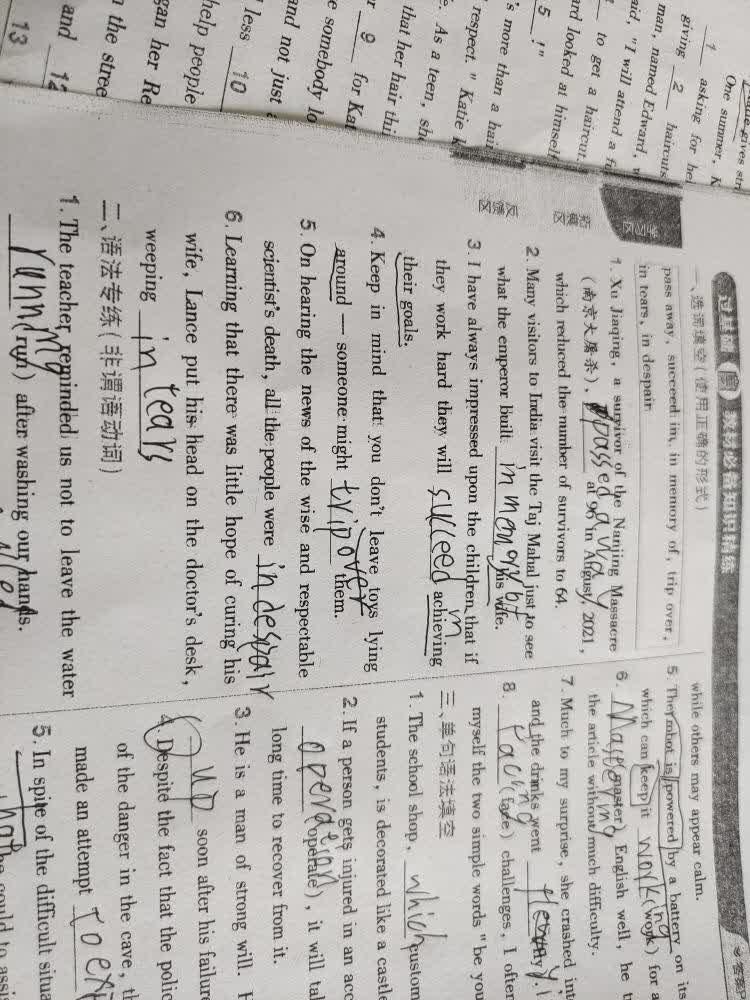 giving 2 haircuts
One summer, K
1 asking for he
man, named Edward, w
aid, "I will attend a fu
to get a haircut.
5 !"
ard looked at himself
's more than a hair
respect." Katie k
e. As a teen, she
that her hair thi
9 for Kat
e somebody lo
and not just a
less 10
help people
gan her Re
n the stree
and 12
13
学习区
粘贴区
反馈区
一、选词填空(使用正确的形式)
pass away, succeed in, in memory of, trip over,
in tears, in despair
1. Xu Jiaqing, a survivor of the Nanjing Massacre
(南京大屠杀), passed away at 96 in August, 2021,
which reduced the number of survivors to 64.
2. Many visitors to India visit the Taj Mahal just to see
what the emperor built in memory of his wife.
3. I have always impressed upon the children that if
they work hard they will succeed in achieving
their goals.
4. Keep in mind that you don't leave toys lying
around — someone might trip over them.
5. On hearing the news of the wise and respectable
scientist's death, all the people were in despair
6. Learning that there was little hope of curing his
wife, Lance put his head on the doctor's desk,
weeping in tears
二、语法专练(非谓语动词)
1. The teacher reminded us not to leave the water
running (run) after washing our hands.
while others may appear calm.
5. The robot is powered by a battery on its
which can keep it working (work) for
6. Mastering (master) English well, he
the article without much difficulty.
7. Much to my surprise, she crashed int
and the drinks went
8. Facing (face) challenges, I often
myself the two simple words "be you
三、单句语法填空
1. The school shop, which custom
students, is decorated like a castle
2. If a person gets injured in an acc
operation (operate), it will tak
long time to recover from it.
3. He is a man of strong will. H
up soon after his failure
4. Despite the fact that the polic
of the danger in the cave, th
made an attempt to
5. In spite of the difficult situa
he could to assis